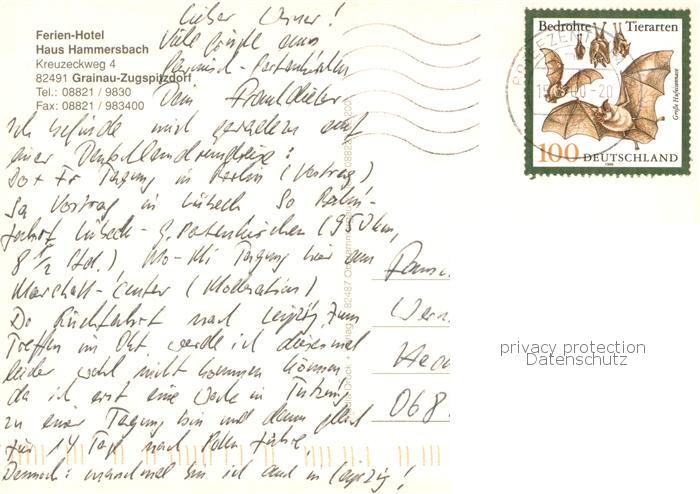 Lieber Werner!
Ferien-Hotel
Haus Hammersbach
Kreuzeckweg 4
82491 Grainau-Zugspitzdorf
Tel.: 08821 / 9830
Fax: 08821 / 983400
Viele Grüße aus
Garmisch-Partenkirchen
Dein
Ich befinde mich geradezu auf
einer Deutschlandrundreise:
Do + Fr Tagung in Berlin (Vortrag)
Sa Vortrag in Lübeck So
Lübeck - G. Patenkirchen (950 km,
8 1/2 Std.) Mo-Mi Tagung hier am
Marshall-Center (Moderation)
Do Rückfahrt nach Leipzig. Zum
Treffen im Okt. werde ich diesmal
leider wohl nicht kommen können
da ich erst eine Woche in Tutzing
zu einer Tagung bin und dann gleich
für 14 Tage nach Polen fahre
Dennoch: manchmal bin ich auch in Leipzig!
Bedrohte Tierarten
Große Hufeisennase
100 DEUTSCHLAND
Wern
068
privacy protection
Datenschutz